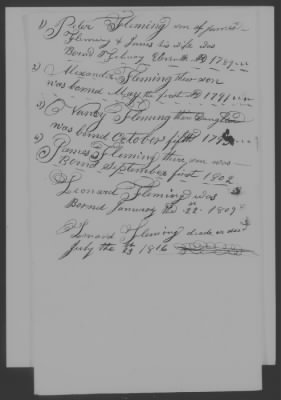 1) Peter Fleming son of James
Fleming & James his wife was
Bornd February AD 1789
2) Alexander Fleming ther son
was bornd May the first AD 1791
3) Nancy Fleming ther Daughter
was bornd October fifth
4) James Fleming there son was
Bornd September first 1802
Leonard Fleming was
Bornd January the 22 1809
Lenard Fleming
July the 23 1816